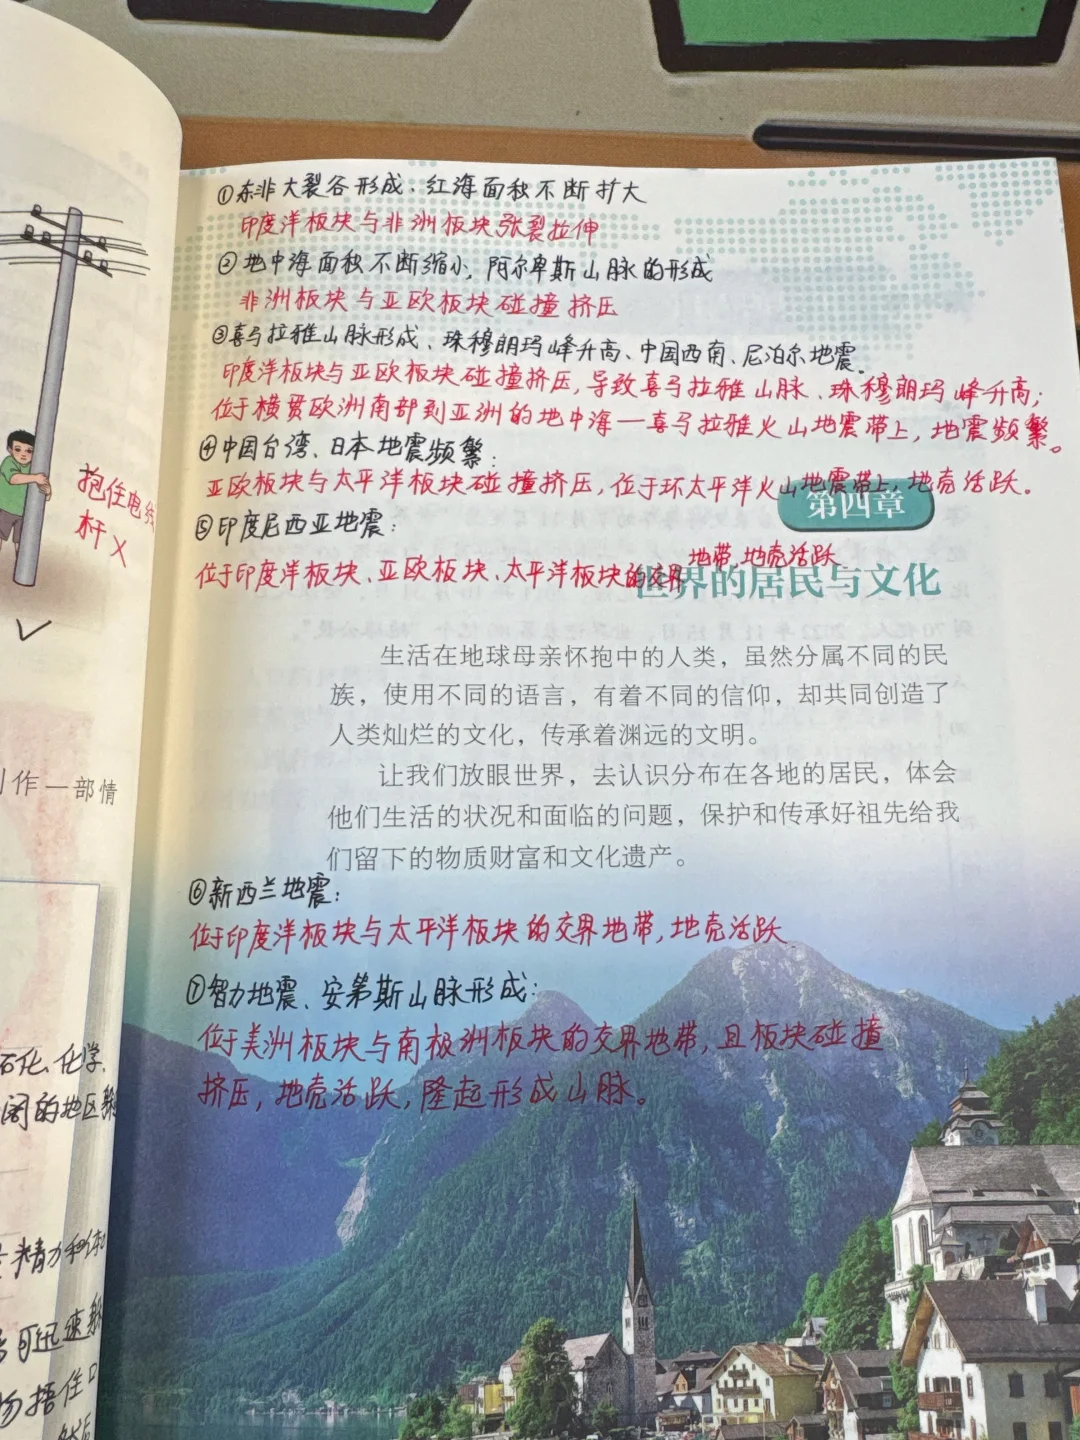 ①东非大裂谷形成、红海面积不断扩大
印度洋板块与非洲板块张裂拉伸
②地中海面积不断缩小，阿尔卑斯山脉的形成
非洲板块与亚欧板块碰撞挤压
③喜马拉雅山脉形成、珠穆朗玛峰升高、中国西南、尼泊尔地震。
印度洋板块与亚欧板块碰撞挤压，导致喜马拉雅山脉、珠穆朗玛峰升高；
位于横贯欧洲南部到亚洲的地中海—喜马拉雅火山地震带上，地震频繁。
④中国台湾、日本地震频繁：
亚欧板块与太平洋板块碰撞挤压，位于环太平洋火山地震带上，地壳活跃。
第四章
⑤印度尼西亚地震：
位于印度洋板块、亚欧板块、太平洋板块的交界地带，地壳活跃
世界的居民与文化
生活在地球母亲怀抱中的人类，虽然分属不同的民
族，使用不同的语言，有着不同的信仰，却共同创造了
人类灿烂的文化，传承着渊远的文明。
让我们放眼世界，去认识分布在各地的居民，体会
他们生活的状况和面临的问题，保护和传承好祖先给我
们留下的物质财富和文化遗产。
⑥新西兰地震：
位于印度洋板块与太平洋板块的交界地带，地壳活跃
⑦智力地震、安第斯山脉形成：
位于美洲板块与南极洲板块的交界地带，且板块碰撞
挤压，地壳活跃，隆起形成山脉。
抱住电线
杆×
作一部情
石化、化学、
阔的地区
精力和体
可迅速
捂住口